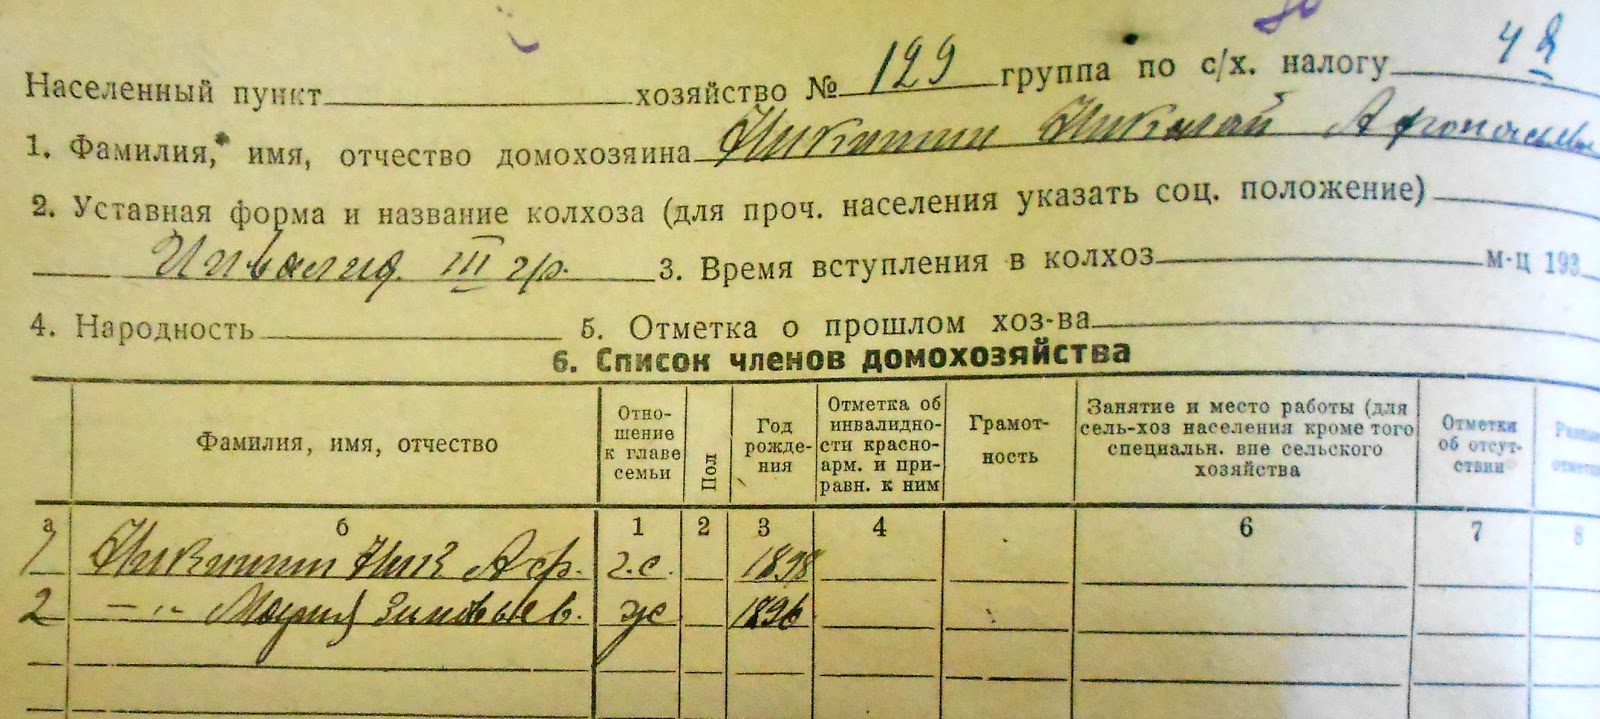 Населенный пункт хозяйство № 129 группа по с/х. налогу 42
1. Фамилия, имя, отчество домохозяина Никитин Николай Афонасьев
2. Уставная форма и название колхоза (для проч. населения указать соц. положение)
Инвалид III гр. 3. Время вступления в колхоз м-ц 193
4. Народность 5. Отметка о прошлом хоз-ва
6. Список членов домохозяйства
Фамилия, имя, отчество
Отно-
шение
к главе
семьи
Пол
Год
рожде-
ния
Отметка об
инвалидно-
сти красно-
арм. и при-
равн. к ним
Грамот-
ность
Занятие и место работы (для
сель-хоз населения кроме того
специальн. вне сельского
хозяйства
Отметки
об отсут-
ствии
а б 1 2 3 4 6 7 8
1 Никитин Ник Аф. г.с. 1898
2 —„— Мария Зиновьев. ж 1896